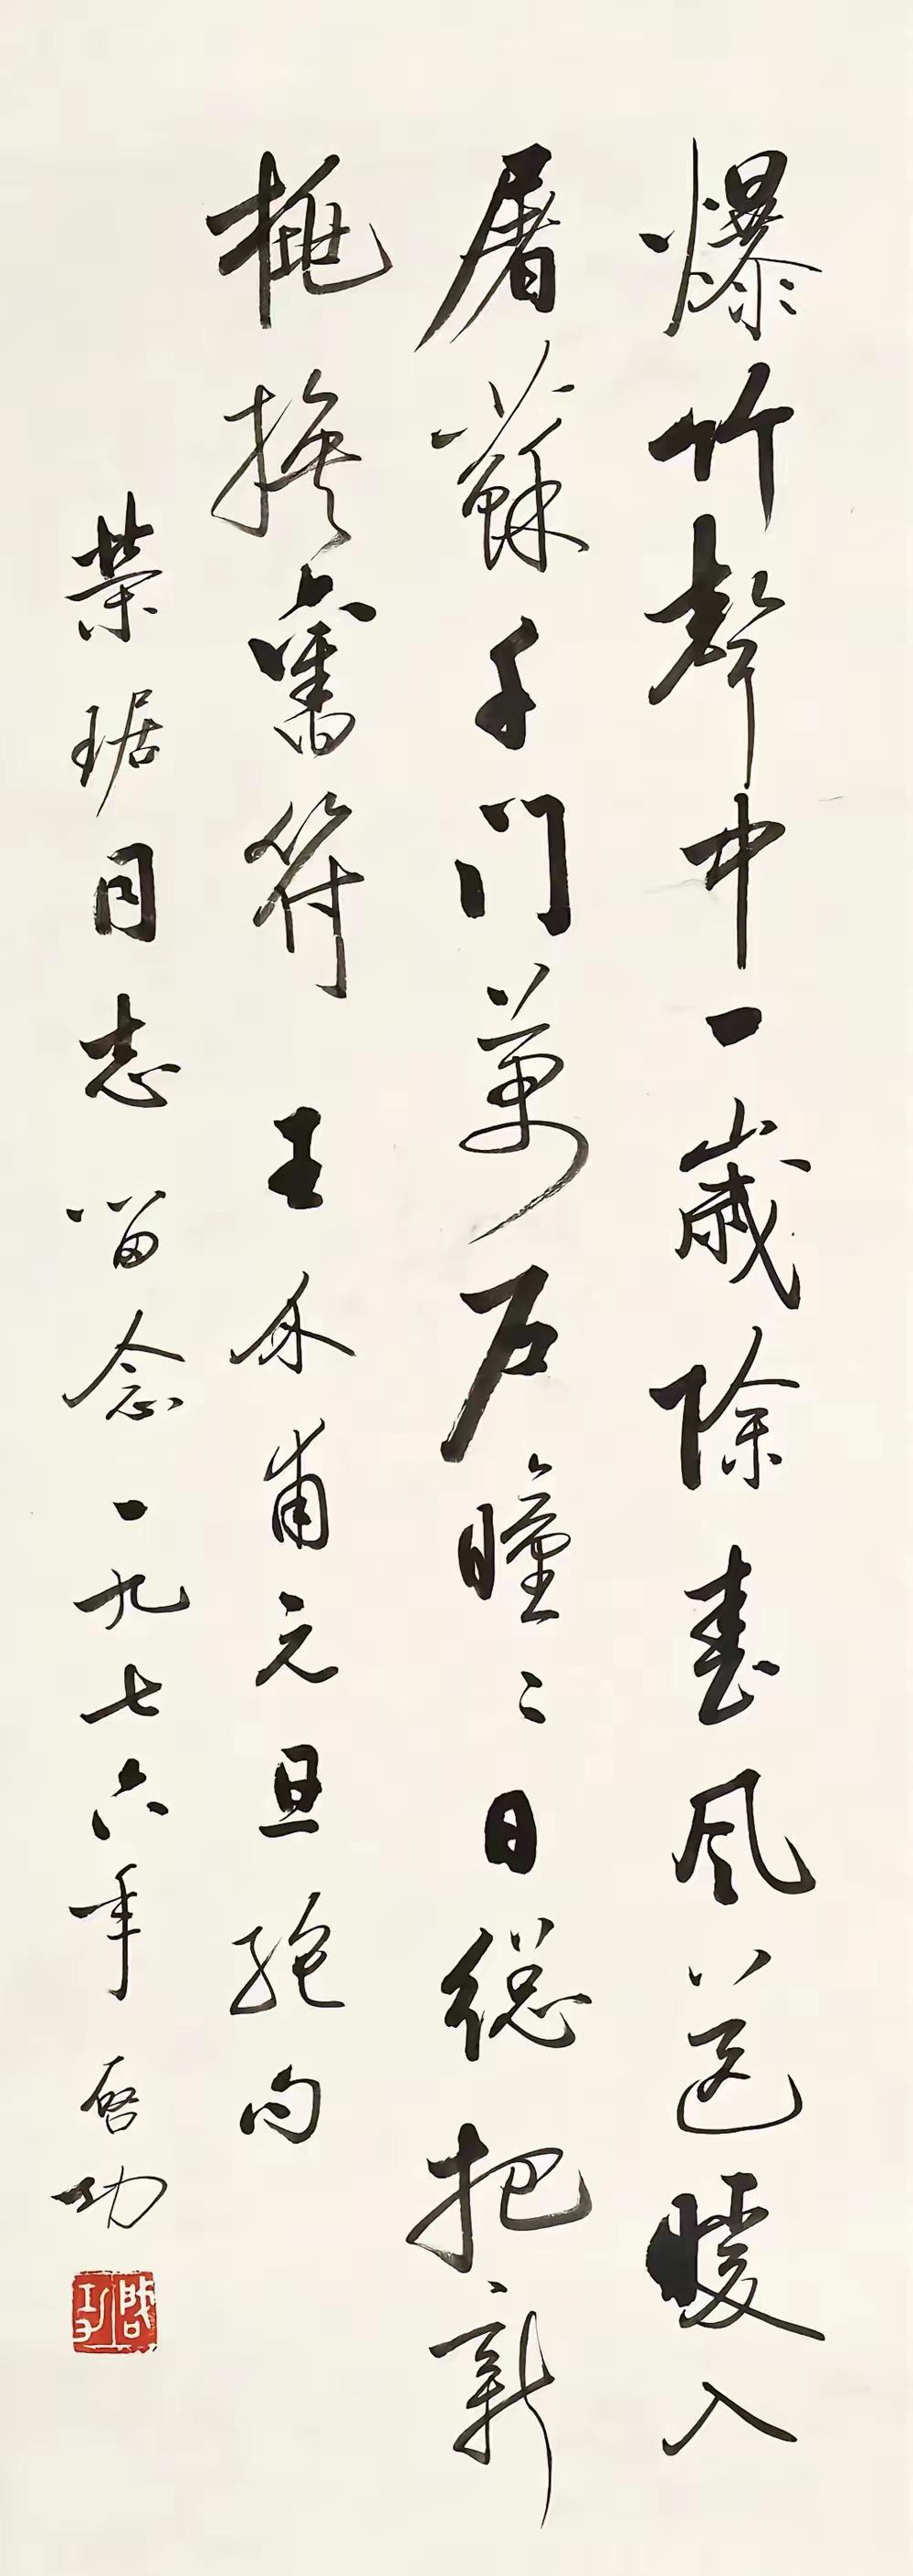 爆竹聲中一歲除春風送暖入
屠蘇千門萬戶曈〻日總把新
桃換舊符 王介甫元旦絕句
榮琚同志留念一九七六年 啓功
啓功